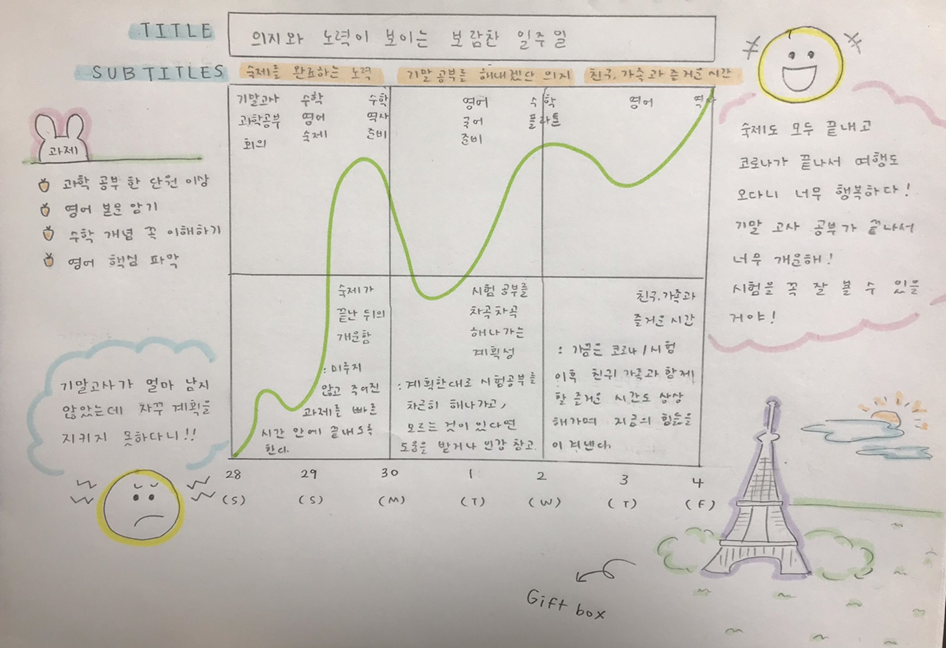 TITLE
의지와 노력이 보이는 보람찬 일주일
SUBTITLES
숙제를 완료하는 노력
기말 공부를 해내겠단 의지
친구, 가족과 즐거운 시간
기말고사 수학 수학
과학공부 영어 역사
회의 숙제 준비
영어 수학
국어 플라톤
준비
영어 역사
과제
과학 공부 한 단원 이상
영어 본문 암기
수학 개념 꼭 이해하기
영어 핵심 파악
숙제도 모두 끝내고
코로나가 끝나서 여행도
오다니 너무 행복하다!
기말 고사 공부가 끝나서
너무 개운해!
시험을 꼭 잘 볼 수 있을
거야!
숙제가
끝난 뒤의
개운함
: 미루지
않고 주어진
과제를 빠른
시간 안에 끝내도록
한다.
시험 공부를
차곡차곡
해나가는
계획성
: 계획한대로 시험공부를
차근히 해나가고,
모르는 것이 있다면
도움을 받거나 인강 참고.
친구, 가족과
즐거운 시간
: 가끔은 코로나/시험
이후 친구/가족과 함께
할 즐거운 시간도 상상
해가며 지금의 힘듦을
이겨낸다.
기말고사가 얼마 남지
않았는데 자꾸 계획을
지키지 못하다니!!
28 29 30 1 2 3 4
(S) (S) (M) (T) (W) (T) (F)
Gift box